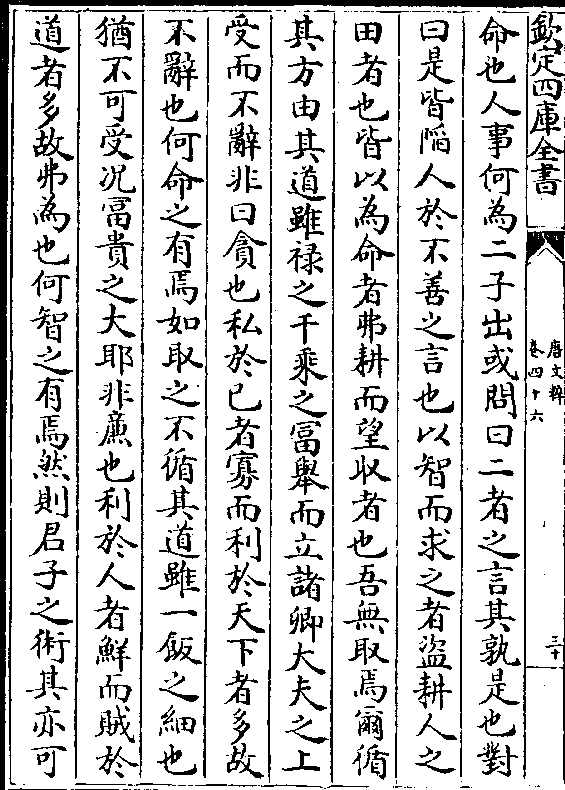 欽定四庫全書
唐文粹
卷四十六
三十
命也人事何為二子出或問曰二者之言其孰是也對
曰是皆惂人於不善之言也以智而求之者盜耕人之
田者也皆以為命者弗耕而望收者也吾無取焉爾循
其方由其道雖禄之千乘之富舉而立諸卿大夫之上
受而不辭非曰貪也私於己者寡而利於天下者多故
不辭也何命之有焉如取之不循其道雖一飯之細也
猶不可受况富貴之大耶非廉也利於人者鮮而賊於
道者多故弗為也何智之有焉然則君子之術其亦可